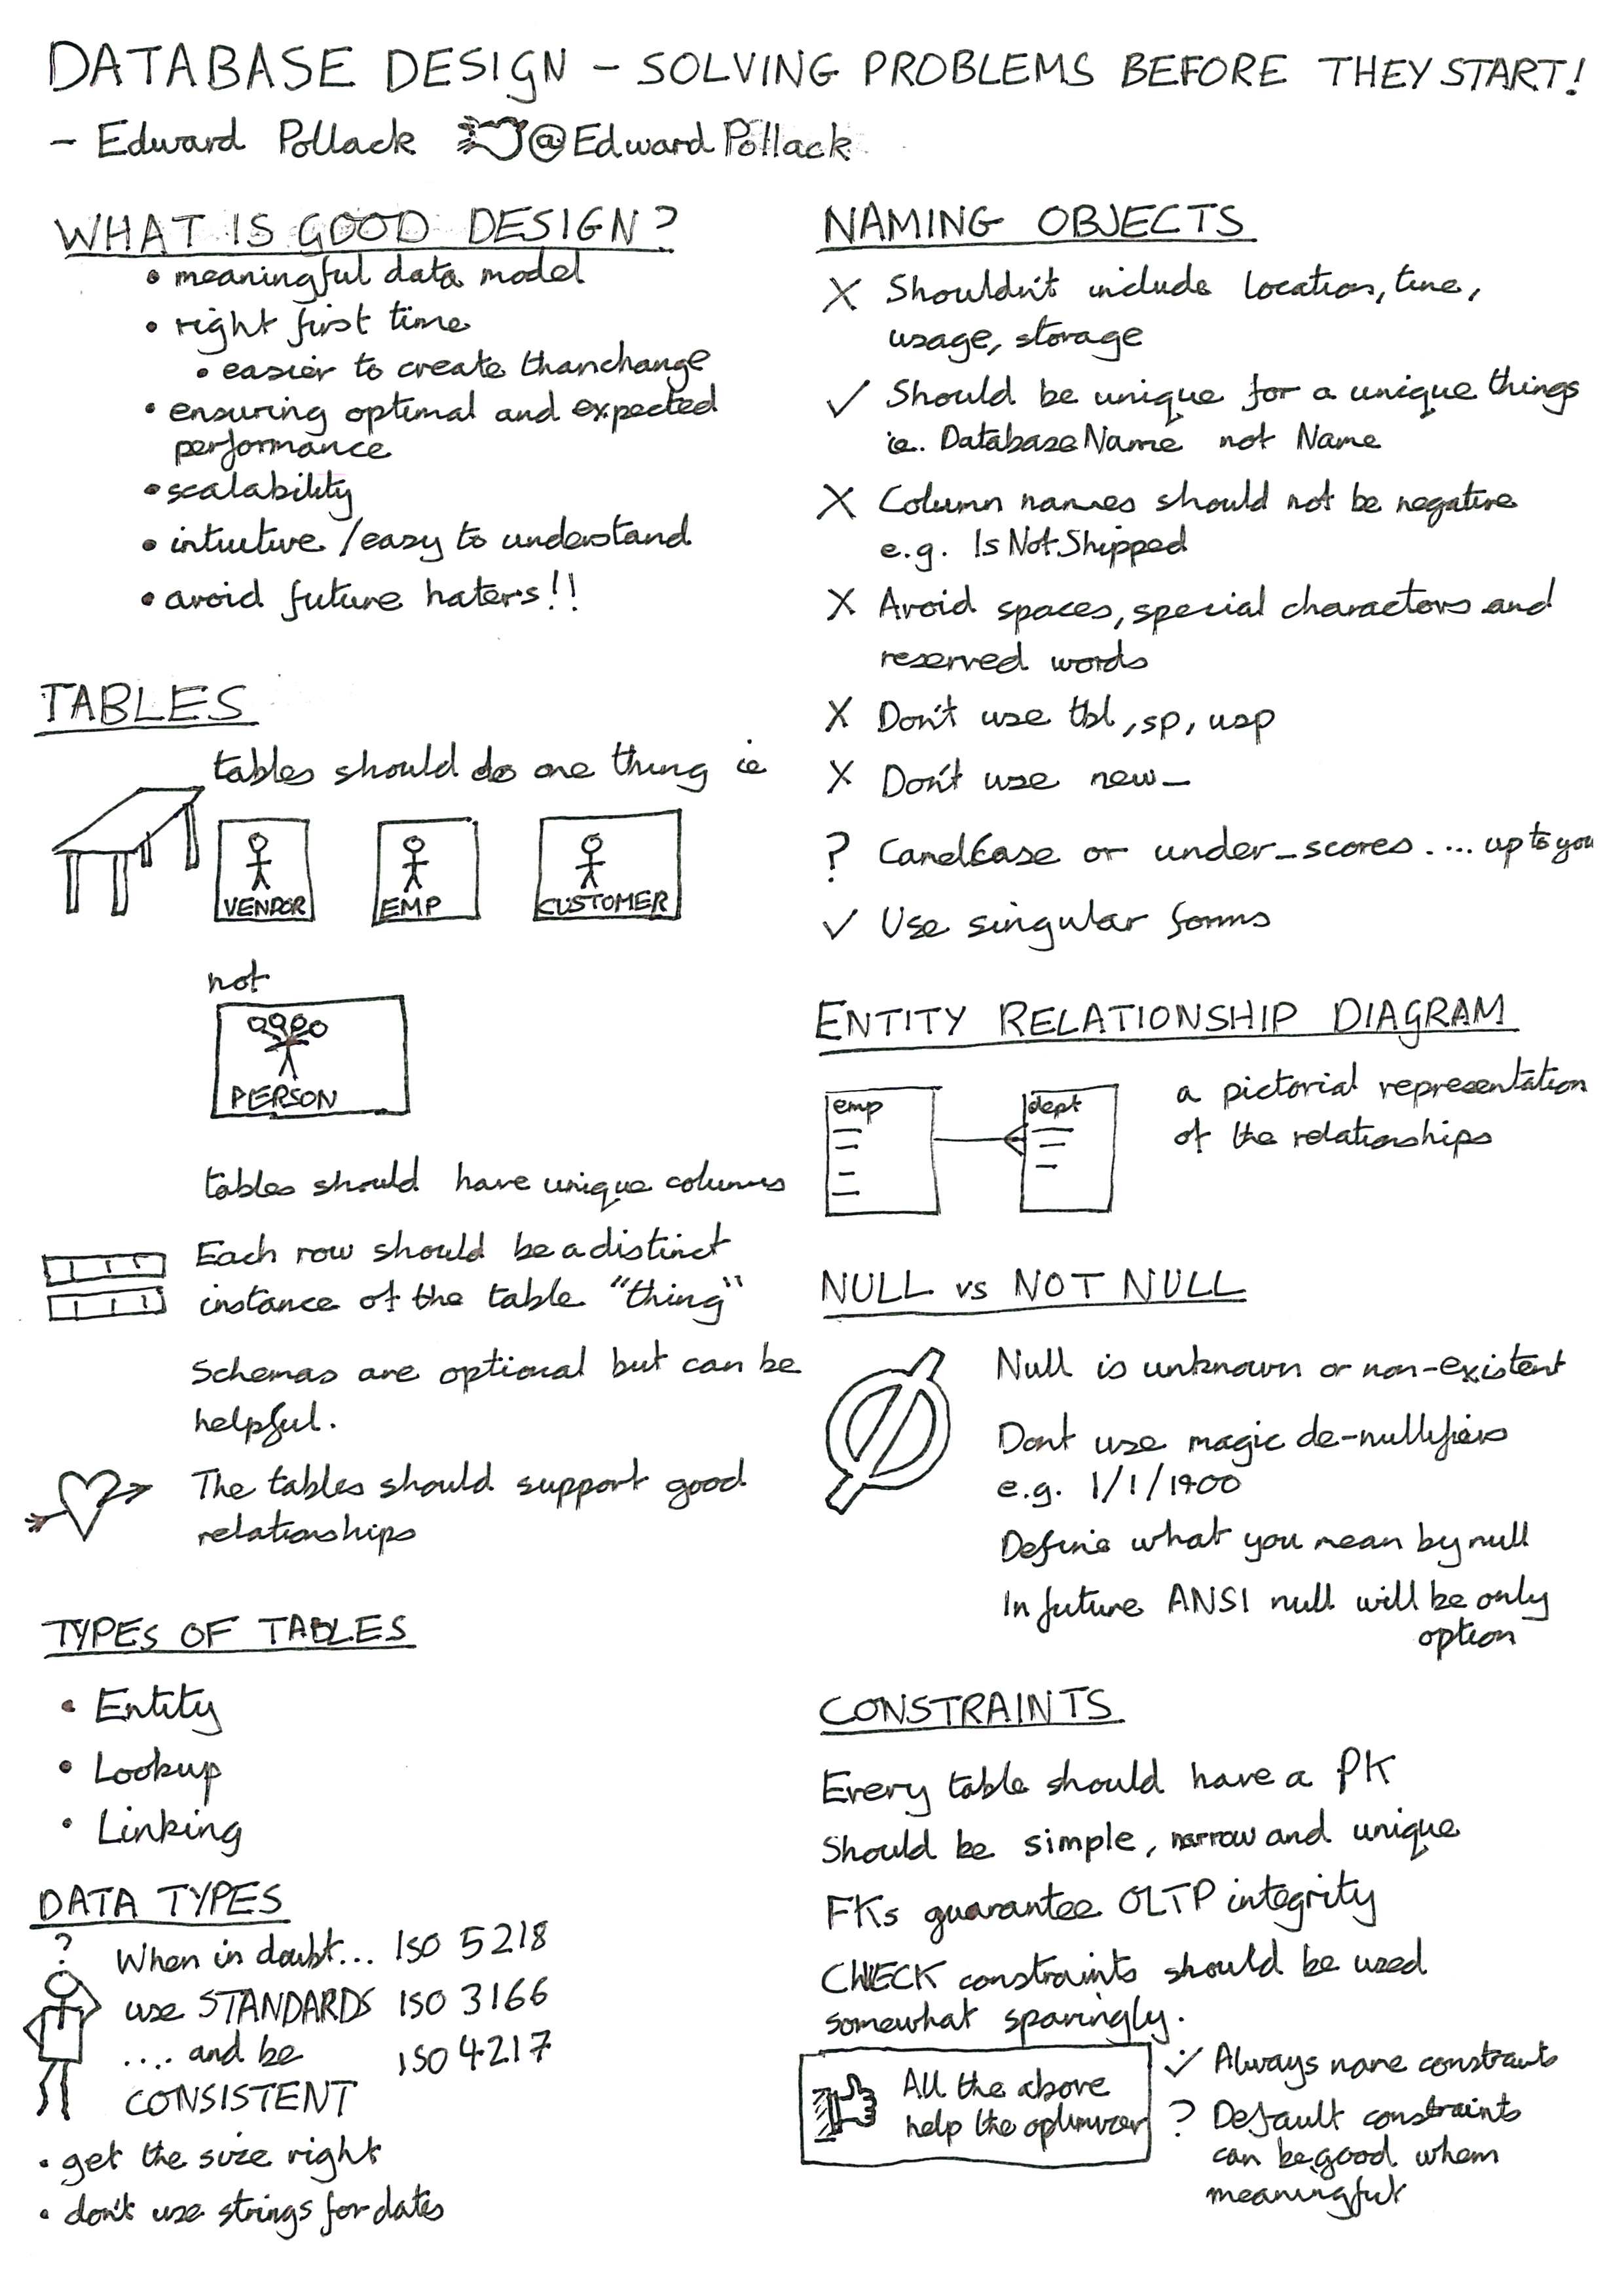 DATABASE DESIGN - SOLVING PROBLEMS BEFORE THEY START!
- Edward Pollack @EdwardPollack
WHAT IS GOOD DESIGN?
• meaningful data model
• right first time
• easier to create than change
• ensuring optimal and expected
performance
• scalability
• intuitive/easy to understand
• avoid future haters!!
TABLES
tables should do one thing ie
VENDOR EMP CUSTOMER
not
PERSON
tables should have unique columns
Each row should be a distinct
instance of the table "thing"
Schemas are optional but can be
helpful.
The tables should support good
relationships
TYPES OF TABLES
• Entity
• Lookup
• Linking
DATA TYPES
? When in doubt... ISO 5218
use STANDARDS ISO 3166
... and be ISO 4217
CONSISTENT
• get the size right
• don't use strings for dates
NAMING OBJECTS
X Shouldn't include location, time,
usage, storage
✓ Should be unique for a unique things
ie. DatabaseName not Name
X Column names should not be negative
e.g. IsNotShipped
X Avoid spaces, special characters and
reserved words
X Don't use tbl, sp, usp
X Don't use new_
? CamelCase or under_scores.... up to you
✓ Use singular forms
ENTITY RELATIONSHIP DIAGRAM
emp dept
a pictorial representation
of the relationships
NULL vs NOT NULL
Null is unknown or non-existent
Dont use magic de-nullifiers
e.g. 1/1/1900
Define what you mean by null
In future ANSI null will be only
option
CONSTRAINTS
Every table should have a PK
Should be simple, narrow and unique
FKs guarantee OLTP integrity
CHECK constraints should be used
somewhat sparingly.
All the above
help the optimiser
✓ Always name constraints
? Default constraints
can be good when
meaningful